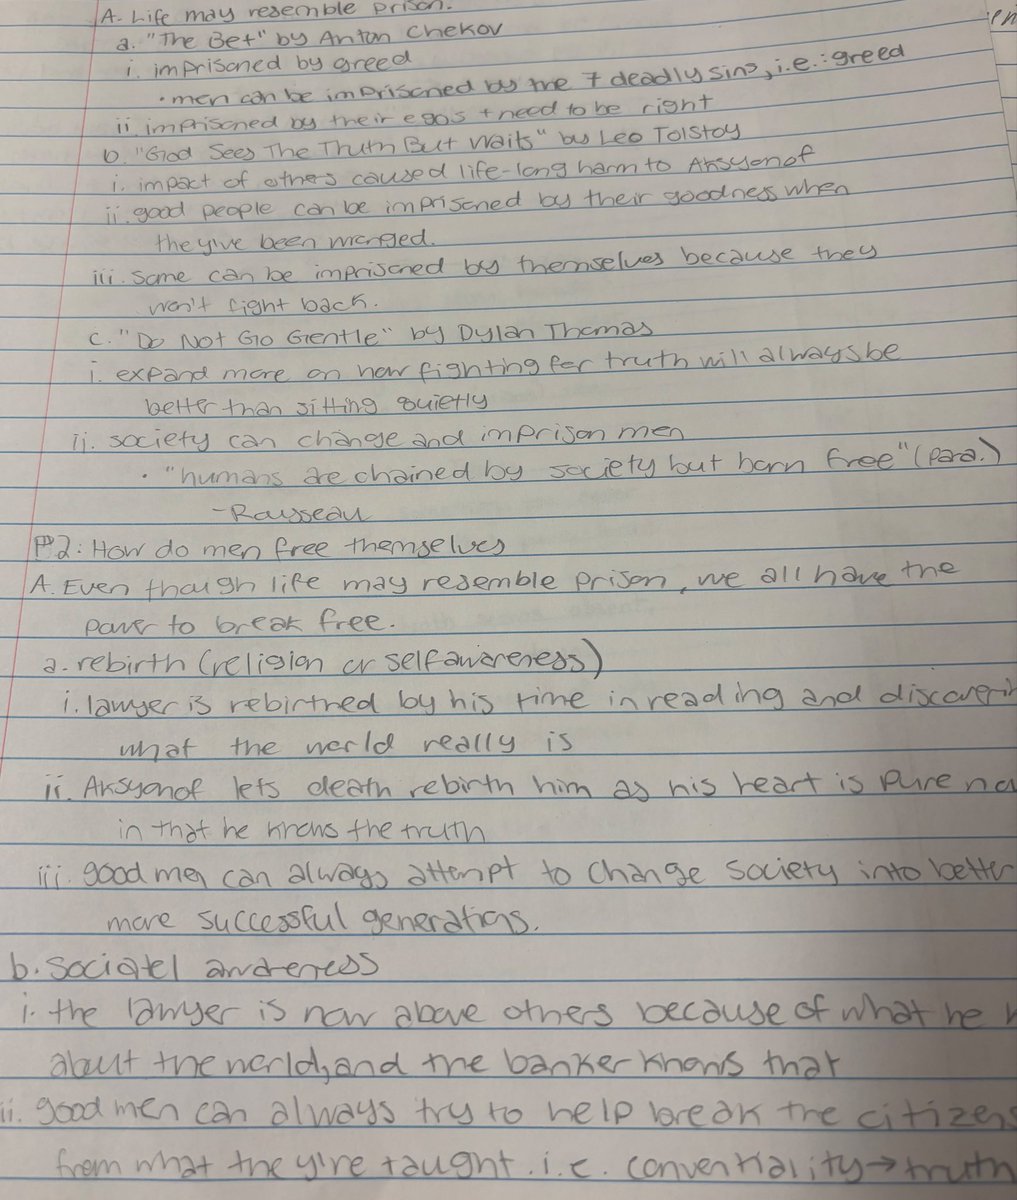 A. Life may resemble prison.
a. "The Bet" by Anton Chekov
i. imprisoned by greed
• men can be imprisoned by the 7 deadly sins, i.e.: greed
ii. imprisoned by their egos + need to be right
b. "God Sees The Truth But Waits" by Leo Tolstoy
i. impact of others caused life-long harm to Aksyonof
ii. good people can be imprisoned by their goodness when
they've been wronged.
iii. some can be imprisoned by themselves because they
won't fight back.
c. "Do Not Go Gentle" by Dylan Thomas
i. expand more on how fighting for truth will always be
better than sitting quietly
ii. society can change and imprison men
• "humans are chained by society but born free" (para.)
- Rousseau
P2: How do men free themselves
A. Even though life may resemble prison, we all have the
power to break free.
a. rebirth (religion or self awareness)
i. lawyer is rebirthed by his time in reading and discoverin
what the world really is
ii. Aksyonof lets death rebirth him as his heart is pure no
in that he knows the truth
iii. good men can always attempt to change society into better
more successful generations.
b. sociatel awareness
i. the lawyer is now above others because of what he
about the world, and the banker knows that
ii. good men can always try to help break the citizens
from what they're taught. i.e. conventiality → truth